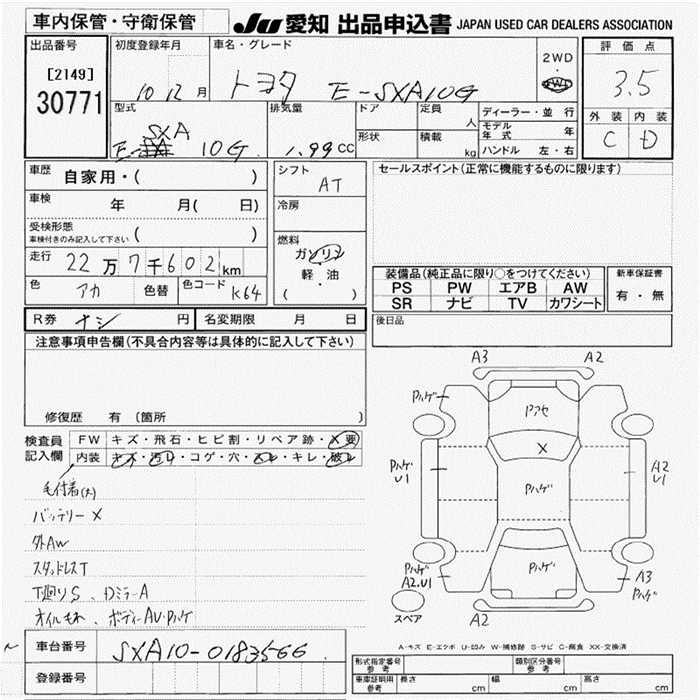 車内保管・守衛保管
JU 愛知 出品申込書 JAPAN USED CAR DEALERS ASSOCIATION
出品番号
[2149]
30771
初度登録年月
10 12 月
車名・グレード
トヨタ E-SXA10G
2WD
・
4WD
評価点
3.5
外装 内装
C D
型式
SXA
E- 10G
排気量
1.99 CC
ドア
形状
定員
人
積載
kg
ディーラー・並行
モデル年式 年
ハンドル 左・右
車歴 自家用・( )
車検 年 月( 日)
受検形態
車検付きのみ記入して下さい ( )
走行 22万7千602km
色 アカ 色替 色コード K64
シフト
AT
冷房
燃料
ガソリン
軽・油
( )
セールスポイント(正常に機能するものに限ります)
装備品(純正品に限り○をつけてください)
PS PW エアB AW
SR ナビ TV カワシート
新車保証書
有・無
R券 ナシ 円 名変期限 月 日
後日品
注意事項申告欄(不具合内容等は具体的に記入して下さい)
修復歴 有 (箇所 )
検査員記入欄
FW キズ・飛石・ヒビ割・リペア跡・X要
内装 キズ・汚れ・コゲ・穴・スレ・キレ・破レ
毛付着(大)
バッテリーX
外AW
スタッドレスT
下廻りS、DミラーA
オイルもれ、ボディーAU・Pハゲ
A3 A2
Pハゲ
Pアセ
X
Pハゲ
U1
Pハゲ
A2
U1
Pハゲ
Pハゲ
A2.U1
A3
Pハゲ
スペア
A2
A-キズ E-エクボ U-凹み W-補修跡 S-サビ C-腐食 XX-交換済
車台番号 SXA10-0183566
登録番号
形式指定番号
参考
類別区分番号
参考
車庫証明用
参考
長さ cm 幅 cm 高さ cm